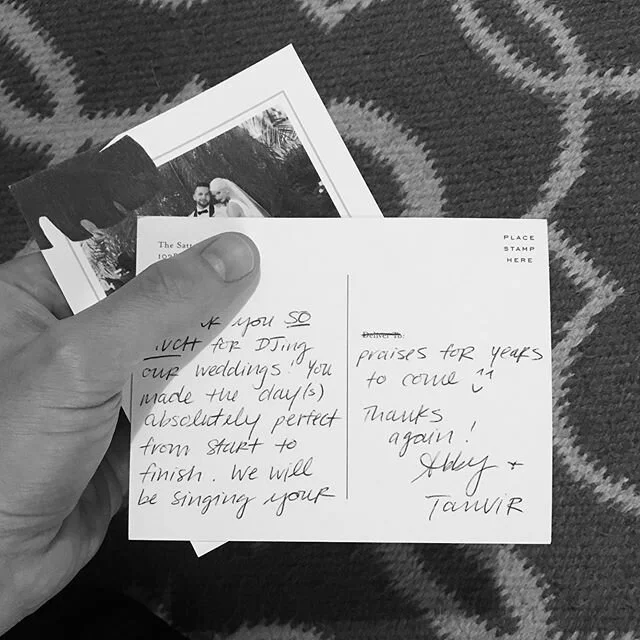 The
PLACE
STAMP
HERE
you SO
MUCH for DJing
our weddings! You
made the day(s)
absolutely perfect
from start to
finish. We will
be singing your
Deliver To:
praises for years
to come
Thanks
again!
Abby +
Tanvir